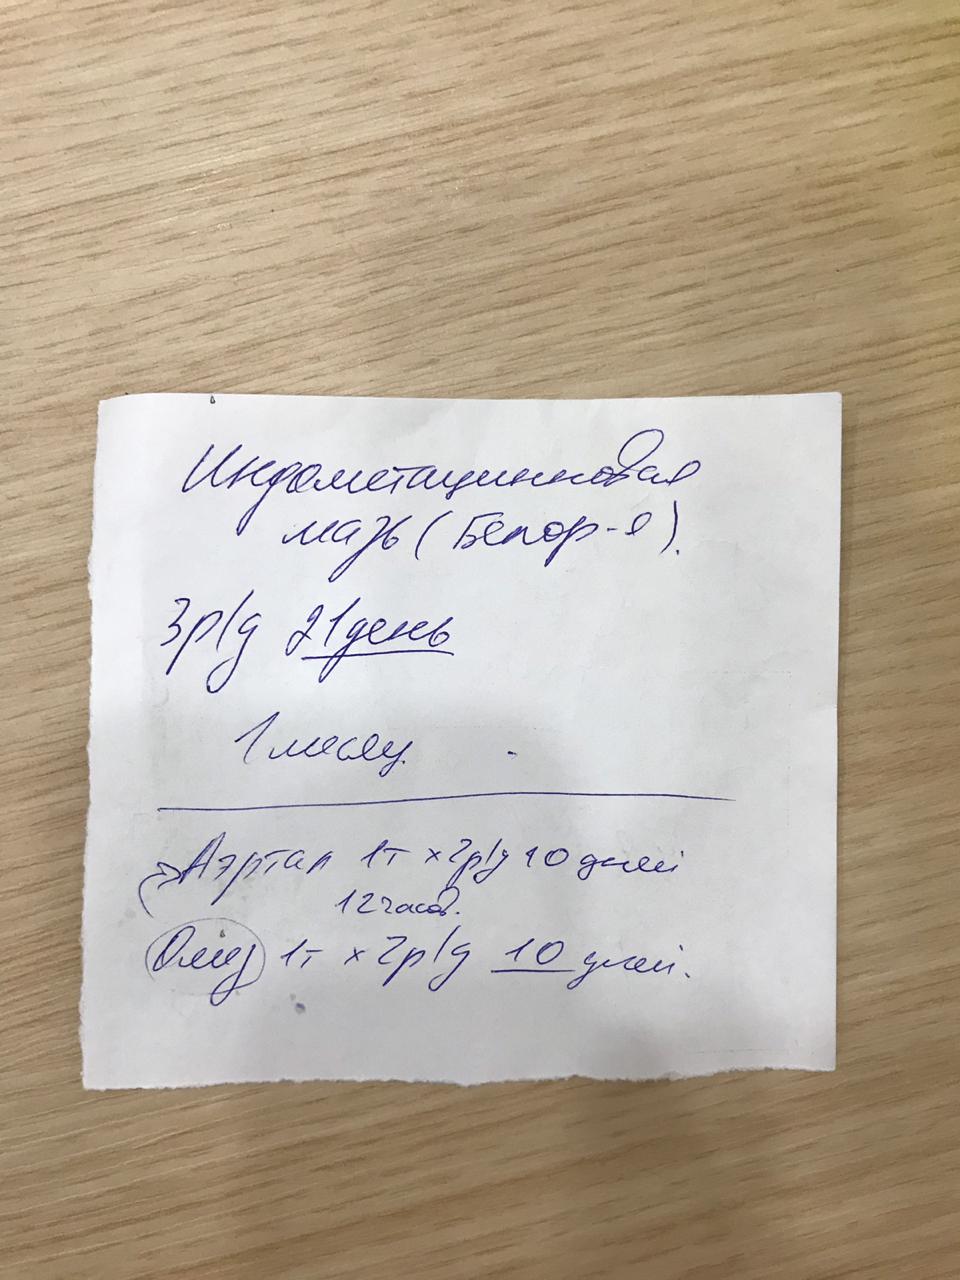 Индометациновая
мазь (Белор-я).
3р/д 21 день
1 месяц.
Аэртал 1т х 2р/д 10 дней
12 часов.
Омез 1т х 2р/д 10 дней.